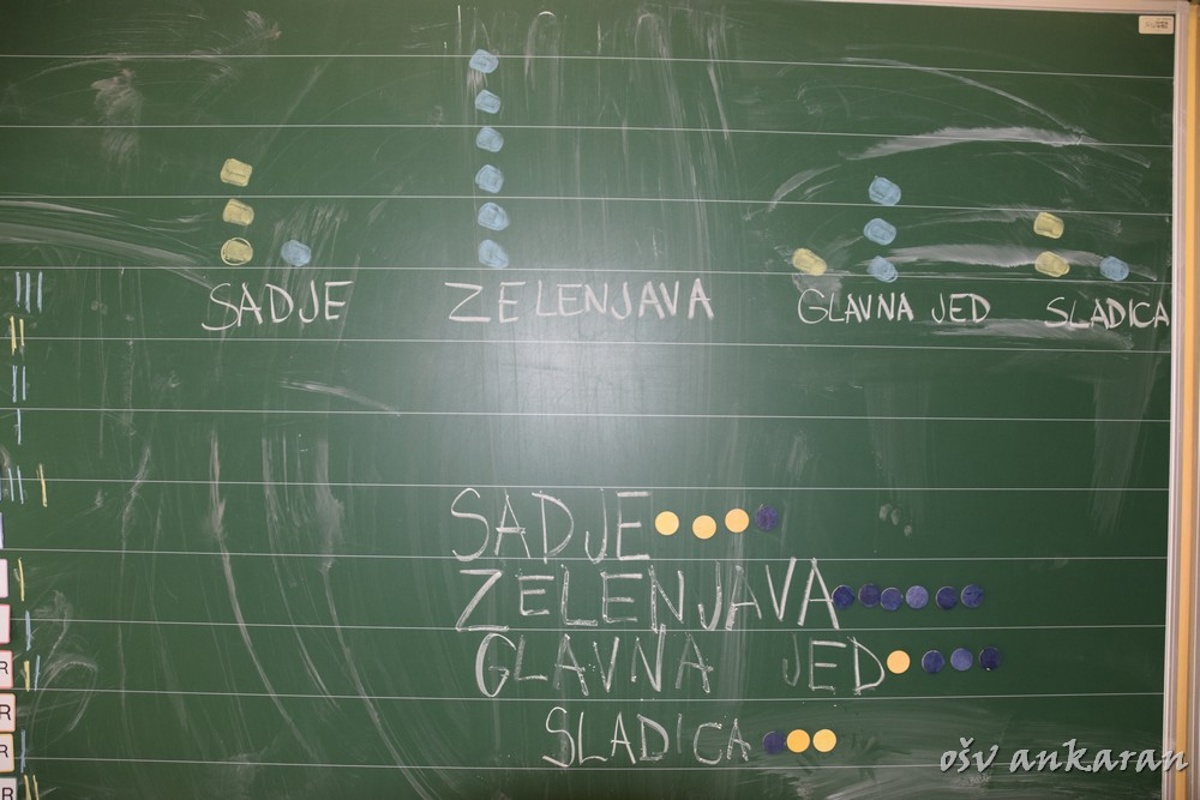 SADJE ZELENJAVA GLAVNA JED SLADICA
SADJE
ZELENJAVA
GLAVNA JED
SLADICA
R
R
R
R
ošv ankaran